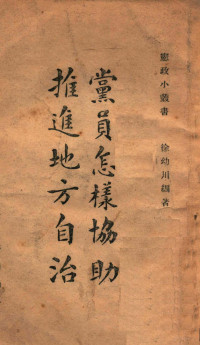 憲政小叢書　徐幼川編著
黨員怎樣協助
推進地方自治